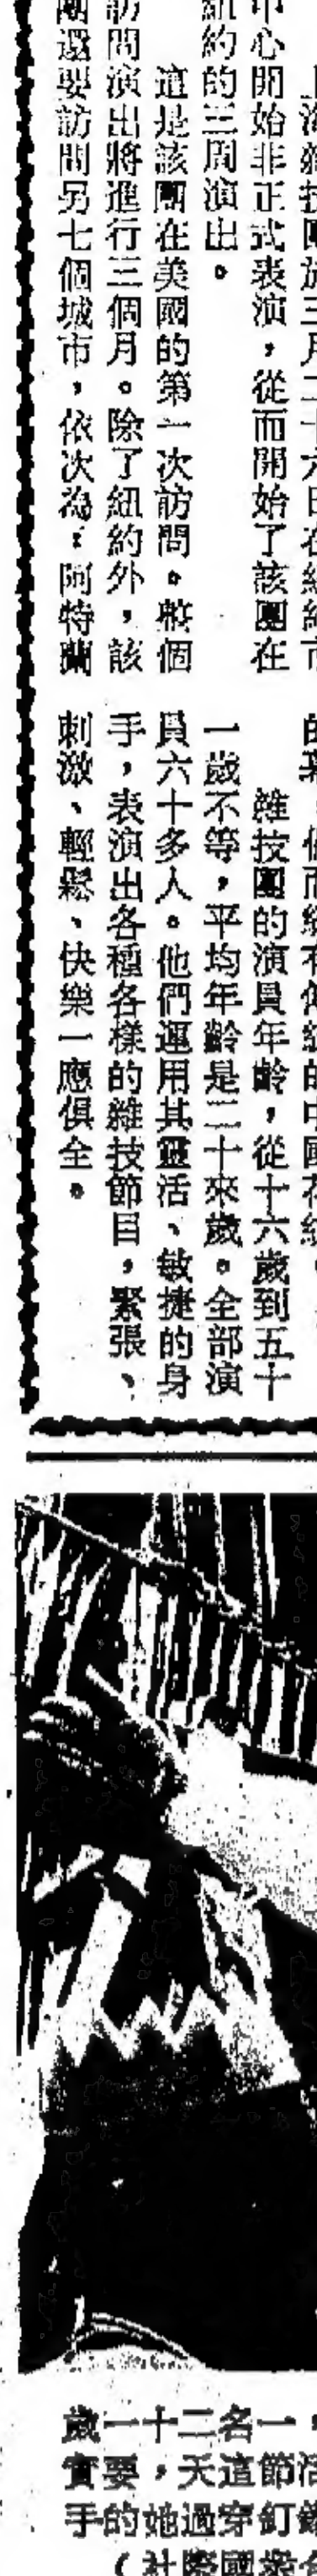 上海雜技團於三月二十六日在紐約市
中心開始非正式表演，從而開始了該團在
紐約的三周演出。
這是該團在美國的第一次訪問。整個
訪問演出將進行三個月。除了紐約外，該
團還要訪問另七個城市，依次為：阿特蘭
的中國花紋。
雜技團的演員年齡，從十六歲到五十
一歲不等，平均年齡是二十來歲。全部演
員六十多人。他們運用其靈活、敏捷的身
手，表演出各種各樣的雜技節目，緊張、
刺激、輕鬆、快樂一應俱全。
，一名二十一歲
活節這天，要實
釘穿過她的手
合眾國際社）